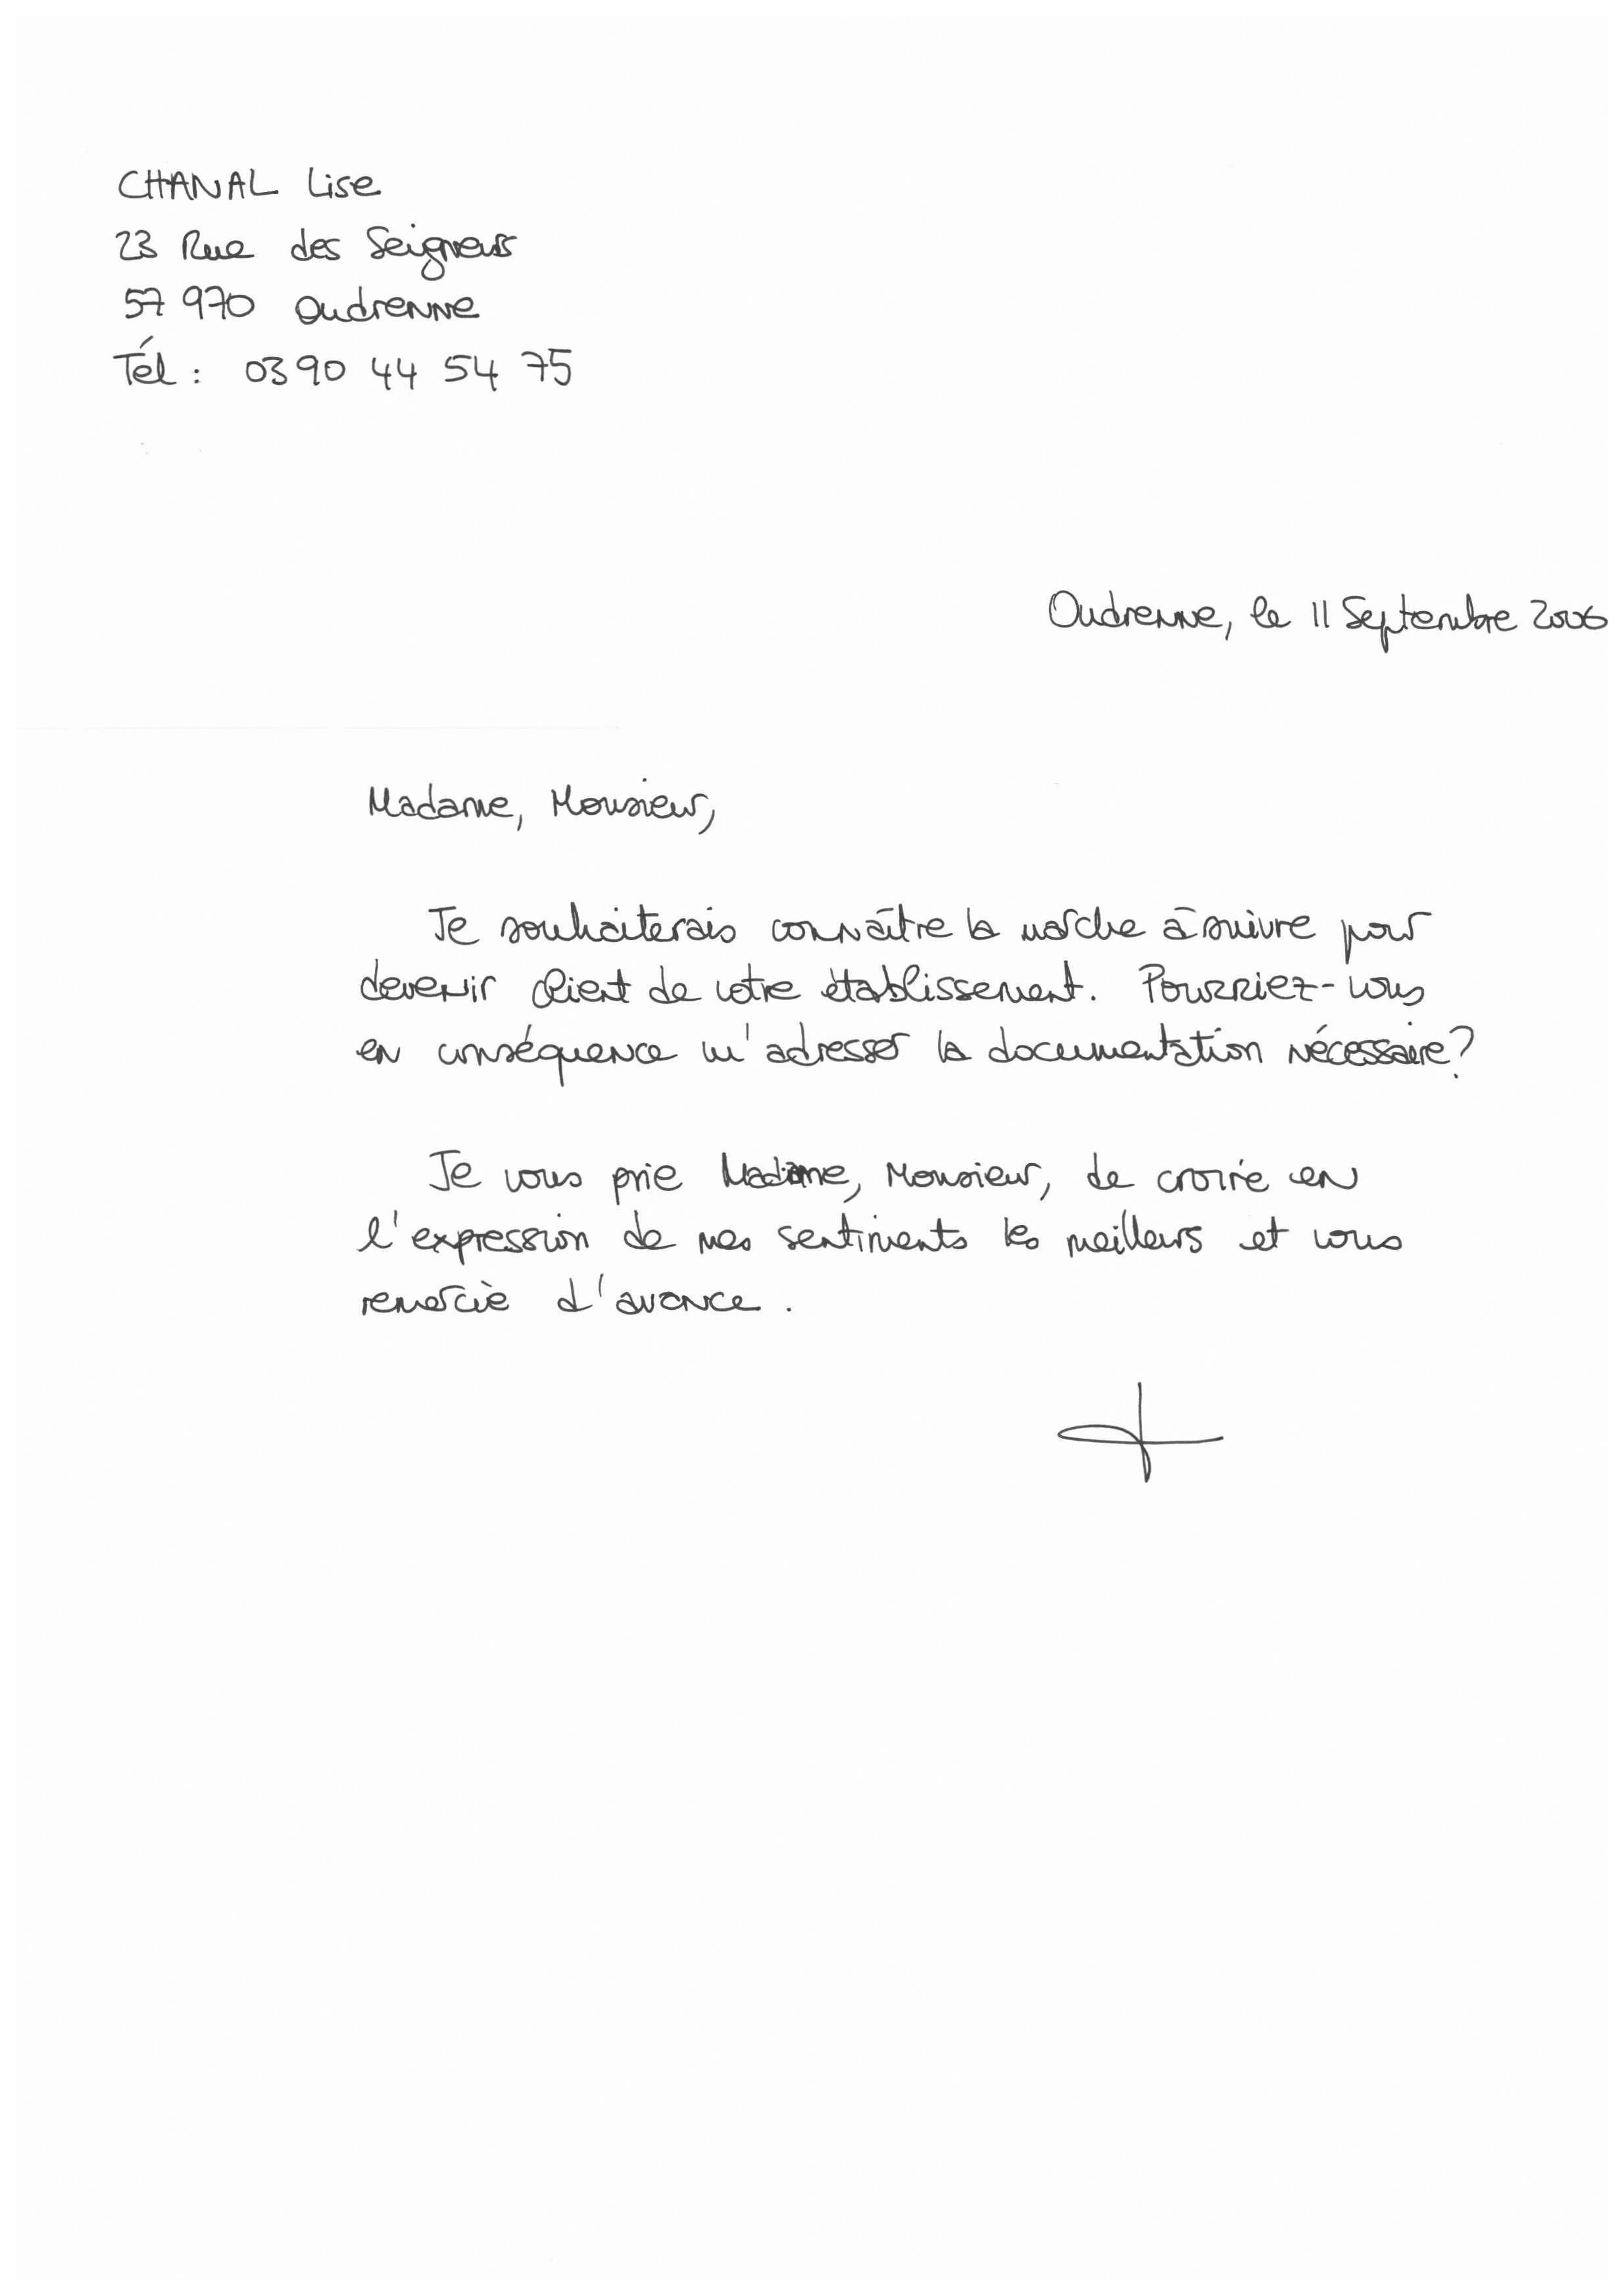 CHANAL Lise
23 Rue des Seigneurs
57 970 Oudrenne
Tél : 03 90 44 54 75
Oudrenne, le 11 Septembre 2006
Madame, Monsieur,
Je souhaiterais connaître la marche à suivre pour
devenir client de votre établissement. Pourriez-vous
en conséquence m'adresser la documentation nécessaire?
Je vous prie Madame, Monsieur, de croire en
l'expression de mes sentiments les meilleurs et vous
remercie d'avance.